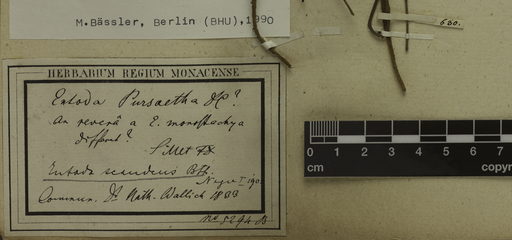 M.Bässler, Berlin (BHU), 1990
630.
HERBARIUM REGIUM MONACENSE
Entada Pursaetha DC?
An reverâ a E. monostachya
differat?
Sillet
Entada scandens Bth.
Commun. Dr Nath. Wallich 1833
No 5294 B
0 1 2 3 4 5 6 7
cm
copyr